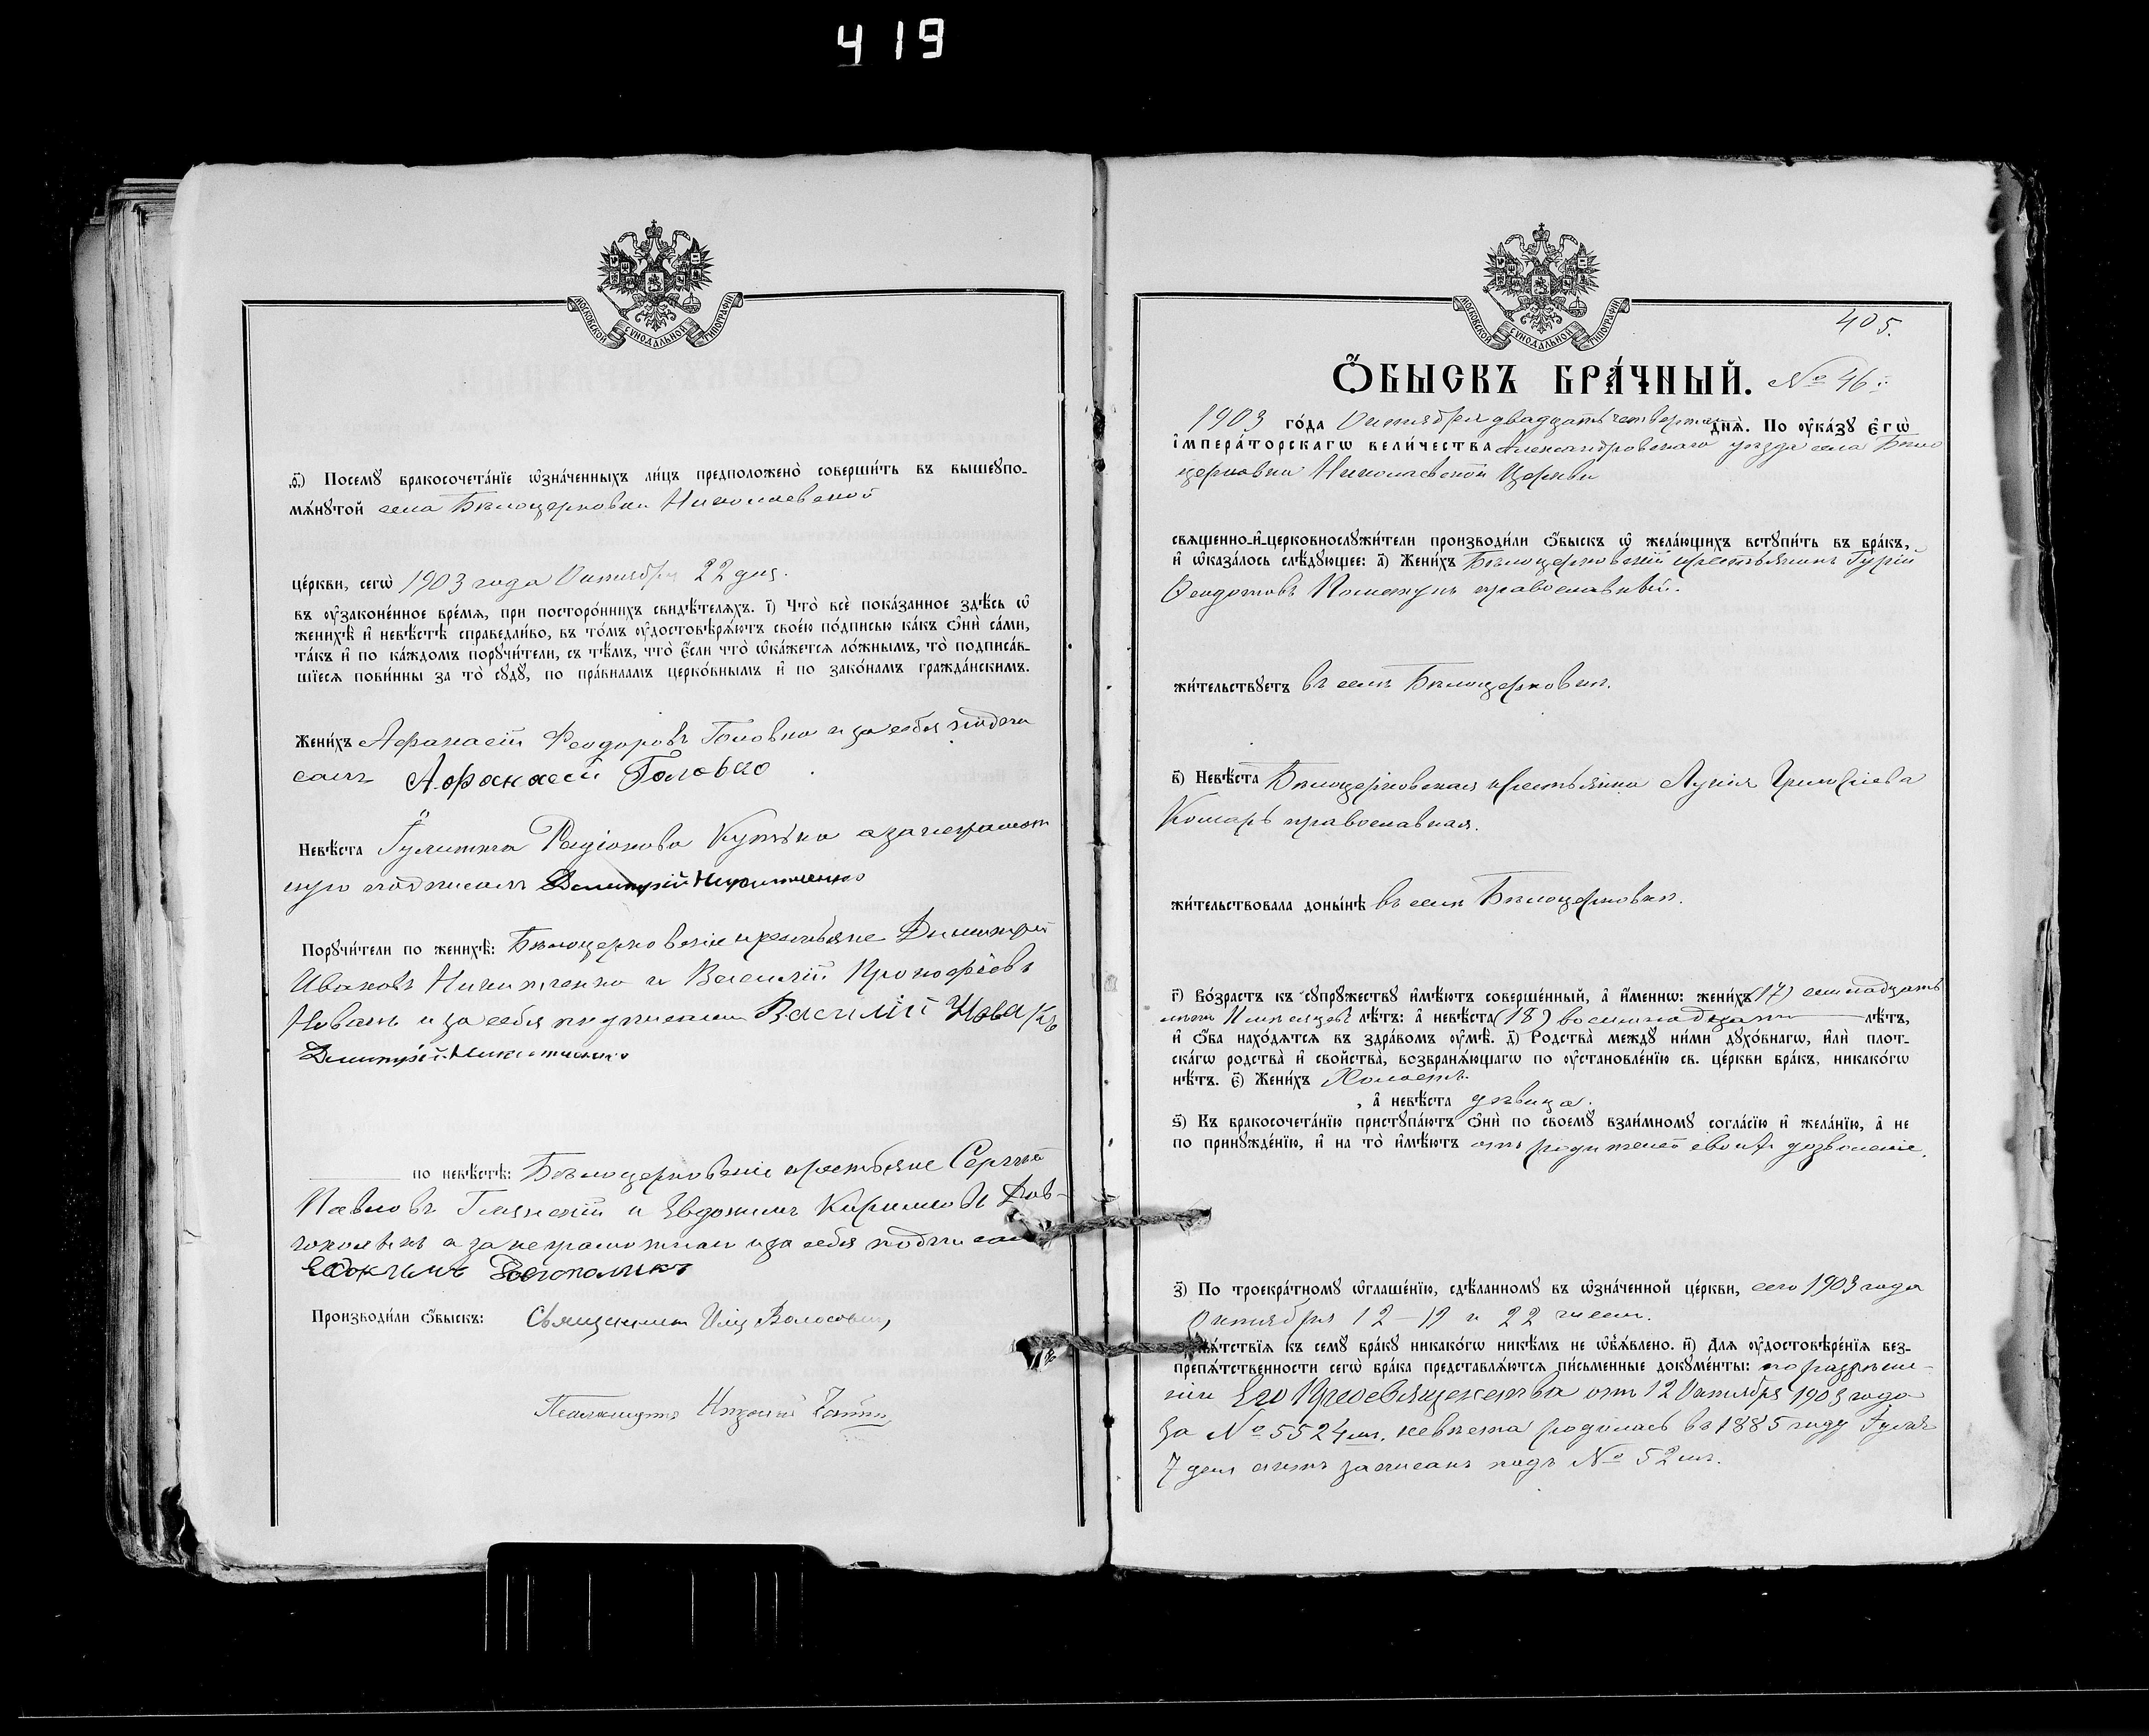 419
МОСКОВСКОЙ СѴНОДАЛЬНОЙ ТИПОГРАФІИ
ѳ҃) Посемꙋ бракосочета́нїе ѡ҆зна́ченныхъ ли́цъ предположено̀ соверши́ть въ вышеупо-
мѧ́нꙋтой села Бѣлоцерковки Николаевской
це́ркви, сегѡ̀ 1903 года Октября 22 дня.
въ ᲂу҆законе́нное вре́мѧ, при посторо́ннихъ свидѣ́телѧхъ. і҃) Что̀ всѐ пока́занное здѣ́сь ѡ҆
женихѣ̀ и҆ невѣ́стѣ справедли́во, въ то́мъ ᲂу҆достовѣрѧ́ютъ свое́ю по́дписью ка́къ ѻ҆нѝ са́ми,
та́къ и҆ по ка́ждомъ порꙋчи́тели, съ тѣ́мъ, что̀ є҆́сли что̀ ѡ҆ка́жетсѧ ло́жнымъ, то̀ подписа́в-
шїесѧ пови́нны за то̀ сꙋдꙋ̀, по пра́виламъ церко́внымъ и҆ по зако́намъ гражда́нскимъ.
Жени́хъ Афанасій Феодоровъ Головко и за себя подпи
салъ Афанасій Головко
Невѣ́ста Іулиттa Родіонова а за неграмот
ную подписалъ Димитрій Никитченко
Порꙋчи́тели по женихѣ̀: Бѣлоцерковскіе крестьяне Димитрій
Ивановъ Никитченко и Василій Прокофіевъ
Новакъ и за себя подписали Василій Новакъ
Димитрій Никитченко
по невѣ́стѣ: Бѣлоцерковскіе крестьяне Сергѣй
Павловъ и Евдокимъ Кириловъ Дов-
гополыкъ а за неграмотнаго и за себя подписалъ
Евдокимъ Довгополыкъ
Производи́ли ѻ҆́быскъ: Священникъ
Псаломщикъ
МОСКОВСКОЙ СѴНОДАЛЬНОЙ ТИПОГРАФІИ
405.
Ѻ҆́БЫСКЪ БРА́ЧНЫЙ. № 46й
1903 го́да Октября двадцать четвертаго днѧ̀. По ᲂу҆ка́зꙋ є҆гѡ̀
і҆мпера́торскагѡ вели́чества Александровскаго уѣзда села Бѣло
церковки Николаевской Церкви
свѧщенно-и҆-церковнослꙋжи́тели производи́ли ѻ҆́быскъ ѡ҆ жела́ющихъ встꙋпи́ть въ бра́къ,
и҆ ѡ҆каза́лось слѣ́дꙋющее: а҃) Жени́хъ Бѣлоцерковскій крестьянинъ Гурій
Феодотовъ православный.
жи́тельствꙋетъ въ селѣ Бѣлоцерковкѣ.
в҃) Невѣ́ста Бѣлоцерковская крестьянка Лукія Григоріева
Комарь православная.
жи́тельствовала доны́нѣ въ селѣ Бѣлоцерковкѣ.
г҃) Во́зрастъ къ сꙋпрꙋ́жествꙋ и҆мѣ́ютъ соверше́нный, а҆ и҆́меннѡ: жени́хъ (17) семнадцать
лѣтъ мѣсяцевъ лѣ́тъ: а҆ невѣ́ста (18) восемнадцать лѣ́тъ,
и҆ ѻ҆́ба нахо́дѧтсѧ въ здра́вомъ ᲂу҆мѣ̀. д҃) Родства̀ междꙋ ни́ми дꙋхо́внагѡ, и҆лѝ плот-
ска́гѡ родства̀ и҆ сво́йства̀, возбранѧ́ющагѡ по ᲂу҆становле́нїю св. це́ркви бра́къ, никако́гѡ
нѣ́тъ. є҃) Жени́хъ Холостъ.
, а҆ невѣ́ста дѣвица.
ѕ҃) Къ бракосочета́нїю пристꙋпа́ютъ ѻ҆нѝ по своемꙋ̀ взаи́мномꙋ согла́сїю и҆ жела́нїю, а҆ не
по принꙋжде́нїю, и҆ на то̀ и҆мѣ́ютъ отъ родителей своихъ дозволеніе.
з҃) По троекра́тномꙋ ѡ҆глаше́нїю, сдѣ́ланномꙋ въ ѡ҆зна́ченной це́ркви, сего 1903 года
Октября 12-19 и 22 числъ.
ѧ́тствїѧ къ семꙋ̀ бра́кꙋ никако́гѡ никѣ́мъ не ѡ҆б̾ѧ́влено. и҃) Длѧ ᲂу҆достовѣре́нїѧ без-
препѧ́тственности сегѡ̀ бра́ка представлѧ́ютсѧ пи́сьменные докꙋме́нты: по разрѣше-
нію Его Преосвященства отъ 12 Октября 1903 года
за № 5524мъ. невѣста родилась въ 1885 году Іуля
7 дня актъ записанъ подъ № 52мъ.